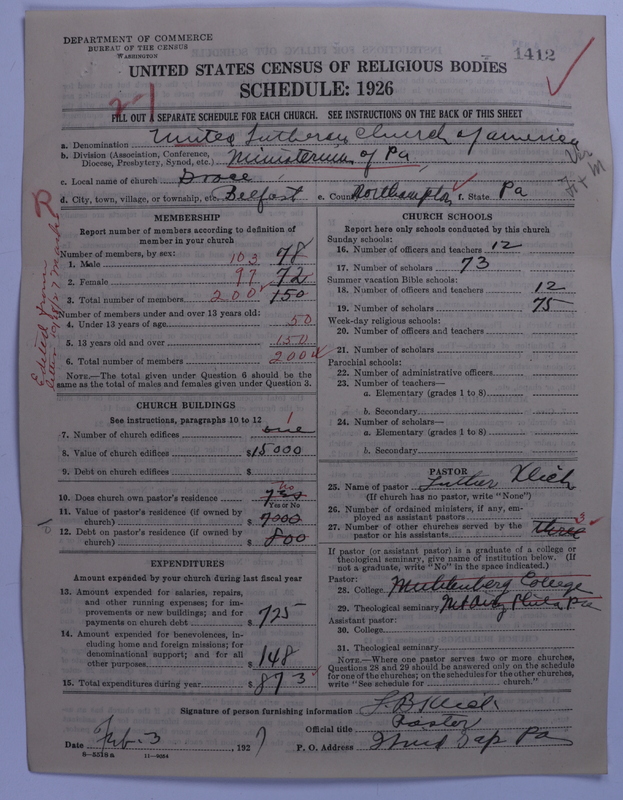 DEPARTMENT OF COMMERCE
BUREAU OF THE CENSUS
WASHINGTON
1412
UNITED STATES CENSUS OF RELIGIOUS BODIES
SCHEDULE: 1926
2-1
FILL OUT A SEPARATE SCHEDULE FOR EACH CHURCH. SEE INSTRUCTIONS ON THE BACK OF THIS SHEET
a. Denomination United Lutheran Church of america
b. Division (Association, Conference, Diocese, Presbytery, Synod, etc.) Ministerium of Pa
c. Local name of church Grace
d. City, town, village, or township, etc. Belfast e. County Northampton f. State Pa
MEMBERSHIP
Report number of members according to definition of
member in your church
Number of members, by sex:
1. Male 103 78
2. Female 97 72
3. Total number of members 200 150
Number of members under and over 13 years old:
4. Under 13 years of age 50
5. 13 years old and over 150
6. Total number of members 200
NOTE.—The total given under Question 6 should be the
same as the total of males and females given under Question 3.
CHURCH BUILDINGS
See instructions, paragraphs 10 to 12
7. Number of church edifices one 1
8. Value of church edifices $15000
9. Debt on church edifices $
10. Does church own pastor's residence yes no
Yes or No
11. Value of pastor's residence (if owned by
church) $7000
12. Debt on pastor's residence (if owned by
church) $800
EXPENDITURES
Amount expended by your church during last fiscal year
13. Amount expended for salaries, repairs,
and other running expenses; for im-
provements or new buildings; and for
payments on church debt $725
14. Amount expended for benevolences, in-
cluding home and foreign missions; for
denominational support; and for all
other purposes $148
15. Total expenditures during year $873
CHURCH SCHOOLS
Report here only schools conducted by this church
Sunday schools:
16. Number of officers and teachers 12
17. Number of scholars 73
Summer vacation Bible schools:
18. Number of officers and teachers 12
19. Number of scholars 75
Week-day religious schools:
20. Number of officers and teachers
21. Number of scholars
Parochial schools:
22. Number of administrative officers
23. Number of teachers—
a. Elementary (grades 1 to 8)
b. Secondary
24. Number of scholars—
a. Elementary (grades 1 to 8)
b. Secondary
PASTOR
25. Name of pastor Luther
(If church has no pastor, write "None")
26. Number of ordained ministers, if any, em-
ployed as assistant pastors
27. Number of other churches served by the
pastor or his assistants three 3
If pastor (or assistant pastor) is a graduate of a college or
theological seminary, give name of institution below. (If
not a graduate, write "No" in the space indicated.)
Pastor:
28. College Muhlenberg College
29. Theological seminary Mt Airy Phila Pa
Assistant pastor:
30. College
31. Theological seminary
NOTE.—Where one pastor serves two or more churches,
Questions 28 and 29 should be answered only on the schedule
for one of the churches; on the schedules for the other churches,
write "See schedule for church."
Signature of person furnishing information
Official title Pastor
Date Feb. 3, 1927 P. O. Address Wind Gap Pa
8-5518a 11-9054